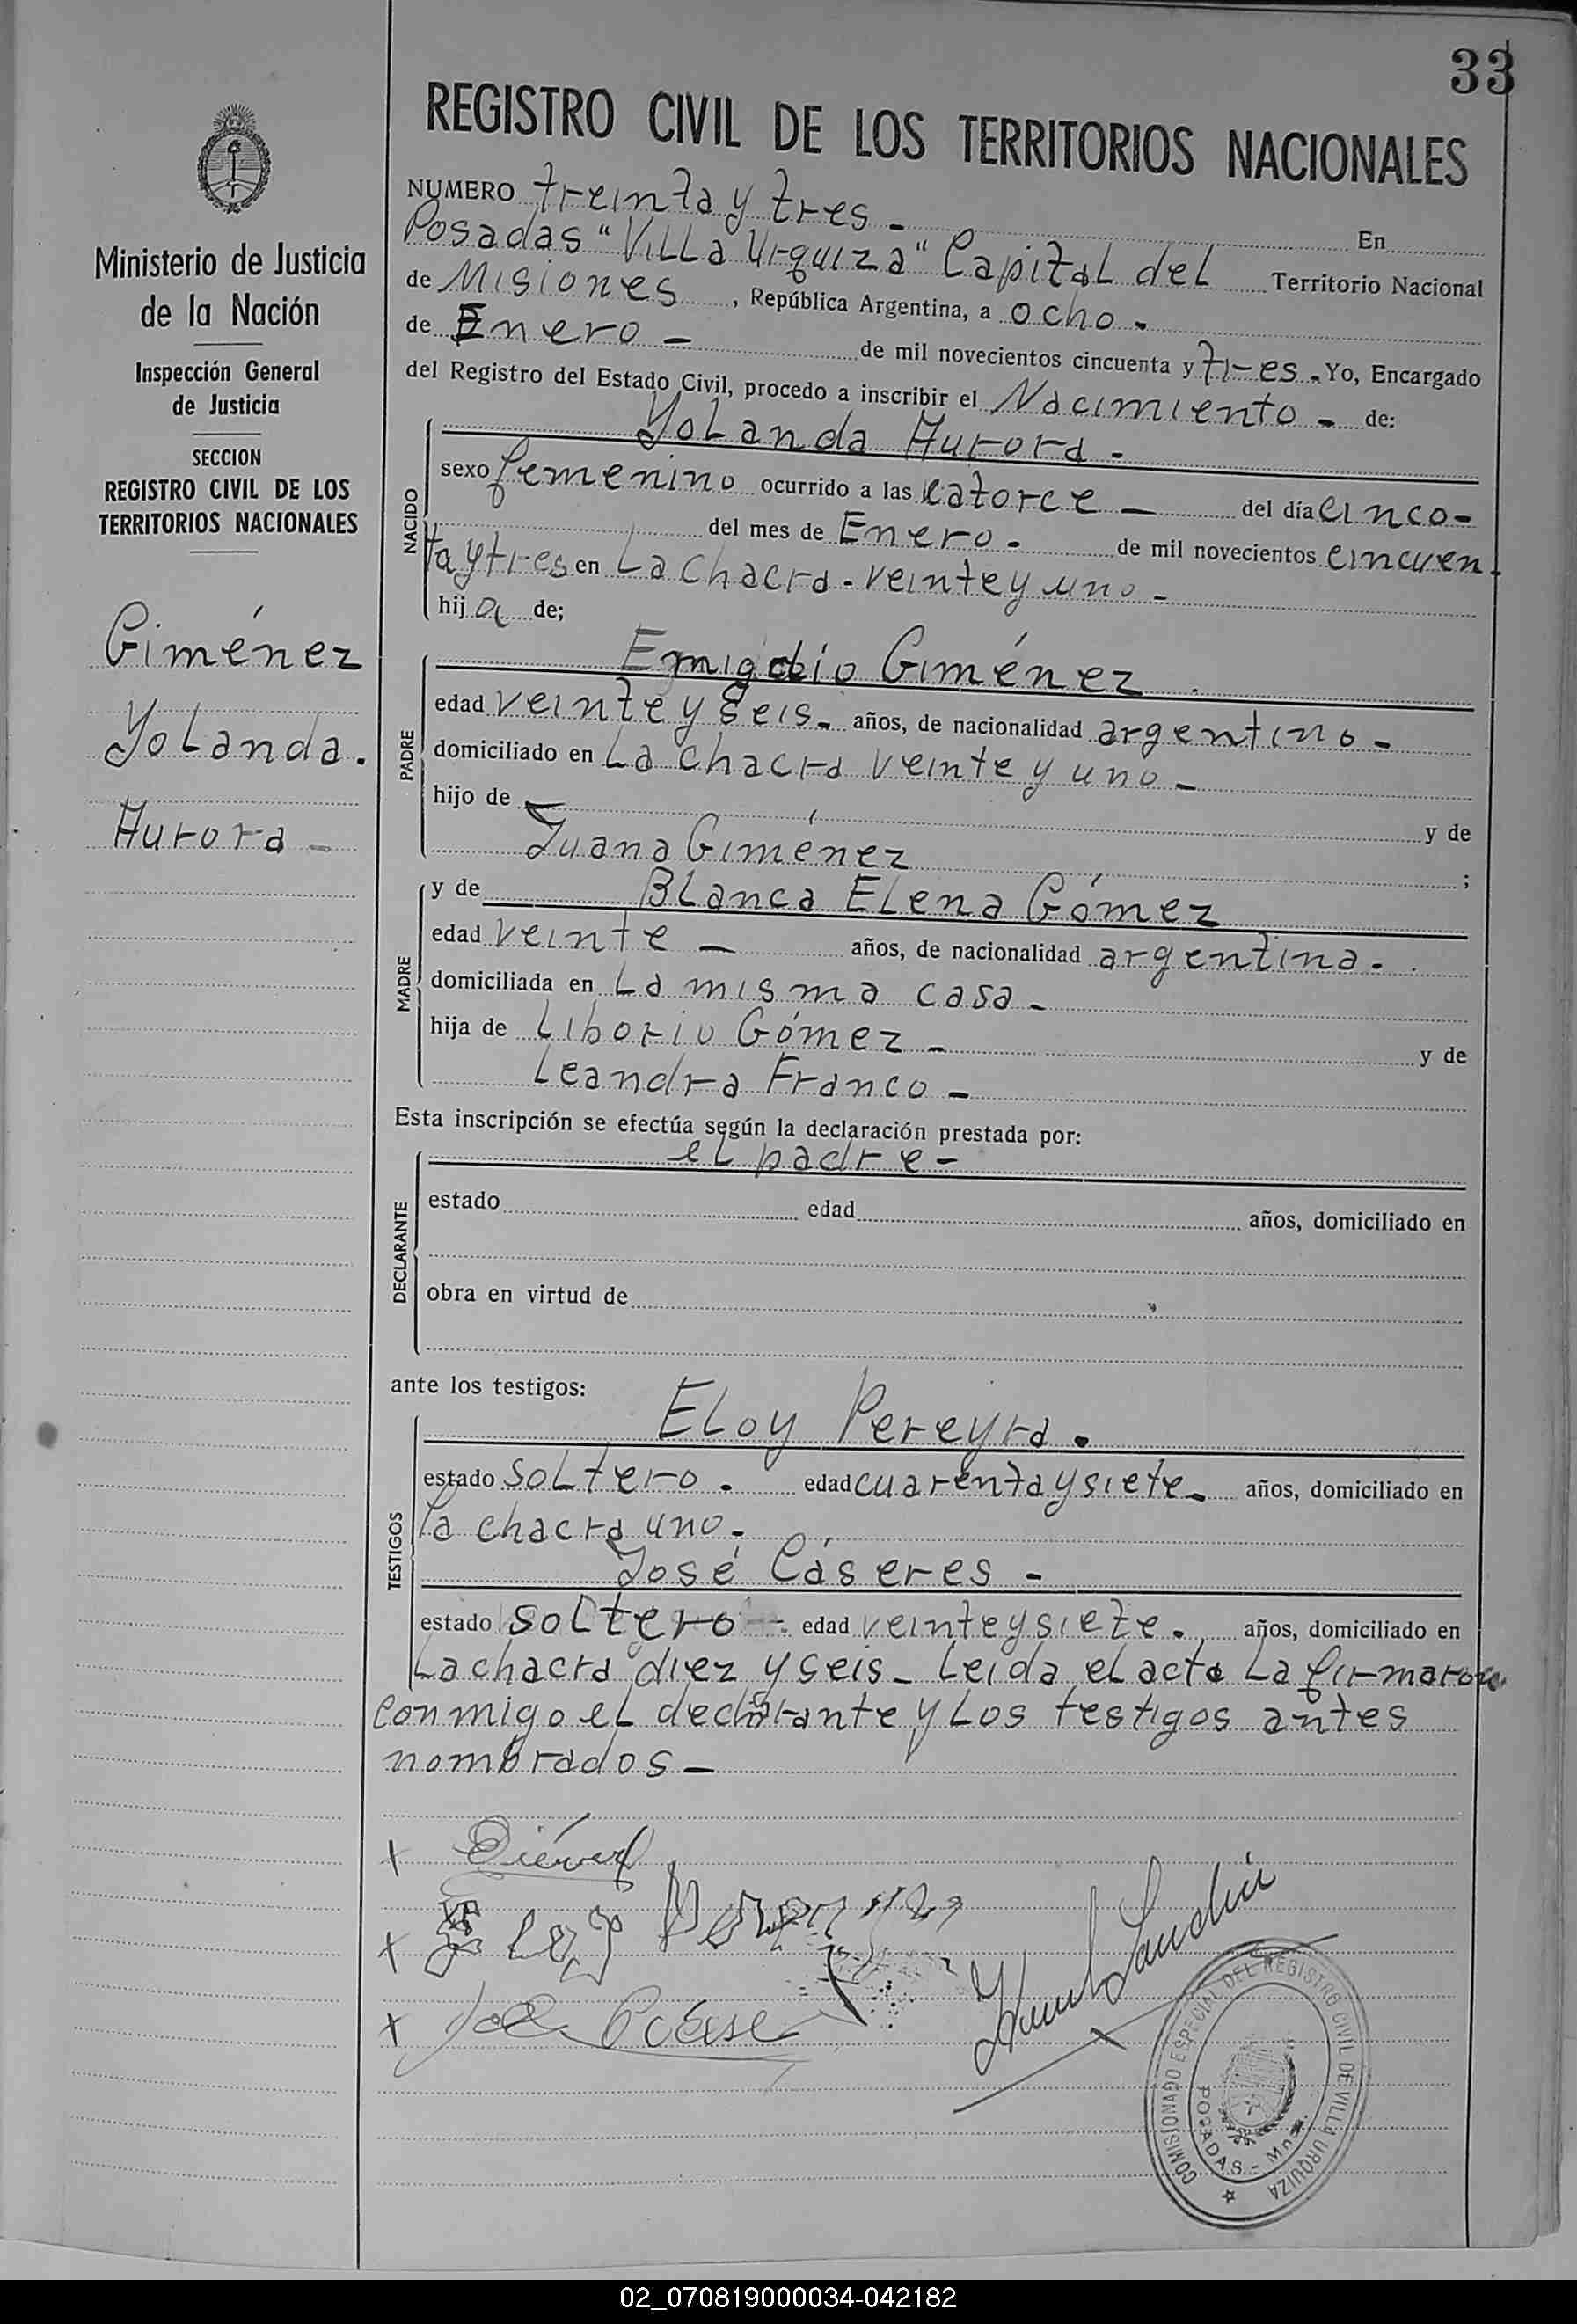 33
REGISTRO CIVIL DE LOS TERRITORIOS NACIONALES
Ministerio de Justicia
de la Nación
Inspección General
de Justicia
SECCION
REGISTRO CIVIL DE LOS
TERRITORIOS NACIONALES
Giménez
Yolanda.
Aurora -
NUMERO treinta y tres - En
Posadas "Villa Urquiza" Capital del Territorio Nacional
de Misiones, República Argentina, a ocho.
de Enero - de mil novecientos cincuenta y tres. Yo, Encargado
del Registro del Estado Civil, procedo a inscribir el Nacimiento - de:
NACIDO
Yolanda Aurora -
sexo femenino ocurrido a las catorce - del día cinco-
del mes de Enero - de mil novecientos cincuen-
ta y tres en La chacra - veinte y uno -
hija de;
PADRE
Emigdio Giménez
edad veinte y seis - años, de nacionalidad argentino -
domiciliado en La chacra veinte y uno -
hijo de y de
Juana Giménez ;
MADRE
y de Blanca Elena Gómez
edad veinte - años, de nacionalidad argentina -
domiciliada en La misma casa -
hija de Liborio Gómez - y de
Leandra Franco -
Esta inscripción se efectúa según la declaración prestada por:
DECLARANTE
el padre -
estado edad años, domiciliado en
obra en virtud de
ante los testigos:
TESTIGOS
Eloy Pereyra.
estado soltero. edad cuarenta y siete - años, domiciliado en
la chacra uno -
José Cáseres -
estado soltero - edad veinte y siete. años, domiciliado en
La chacra diez y seis - Leida el acta La firmaron
conmigo el declarante y los testigos antes
nombrados -
x
x Eloy
x
COMISIONADO ESPECIAL DEL REGISTRO CIVIL DE VILLA URQUIZA
POSADAS - Mnes.
02_070819000034-042182